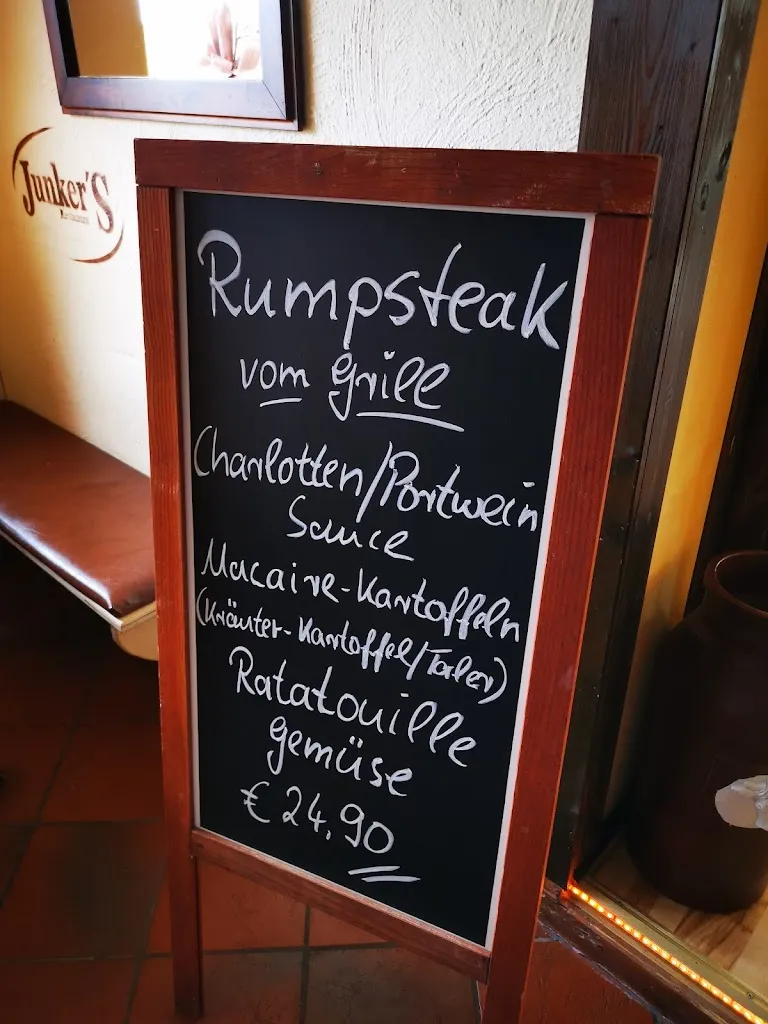 Junker'S
Rumpsteak
vom Grill
Charlotten/Portwein
Sauce
Macaire-Kartoffeln
(Kräuter-Kartoffel/Taler)
Ratatouille
gemüse
€ 24,90